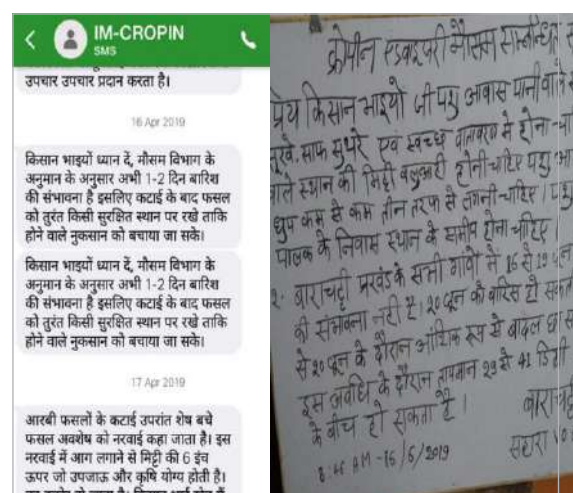 IM-CROPIN
SMS
उपचार उपचार प्रदान करता है।
16 Apr 2019
किसान भाइयों ध्यान दें, मौसम विभाग के
अनुमान के अनुसार अभी 1-2 दिन बारिश
की संभावना है इसलिए कटाई के बाद फसल
को तुरंत किसी सुरक्षित स्थान पर रखे ताकि
होने वाले नुकसान को बचाया जा सके।
किसान भाइयों ध्यान दें, मौसम विभाग के
अनुमान के अनुसार अभी 1-2 दिन बारिश
की संभावना है इसलिए कटाई के बाद फसल
को तुरंत किसी सुरक्षित स्थान पर रखे ताकि
होने वाले नुकसान को बचाया जा सके।
17 Apr 2019
आरबी फसलों के कटाई उपरांत शेष बचे
फसल अवशेष को नरवाई कहा जाता है। इस
नरवाई में आग लगाने से मिट्टी की 6 इंच
ऊपर जो उपजाऊ और कृषि योग्य होती है।
क्रोपीन एडवाइजरी मौसम सम्बन्धित
किसान भाइयो जी पशु आवास पानी वाले
साफ सुथरे एवं स्वच्छ वातावरण मे होना
वाले स्थान की मिट्टी बलुआरी होनी चाहिए पशु
धुप कम से कम तीन तरफ से लगनी चाहिए। पशु
पालक के निवास स्थान के समीप होना चाहिए।
२. बाराचट्टी प्रखंड के सभी गांवो में 16 से 19 जून
की संभावना नही है। २० जून को बारिस हो सकती
से २० जून के दौरान आंशिक रूप से बादल छा
इस अवधि के दौरान तापमान 29 से 41 डिग्री
के बीच हो सकता है।
बाराचट्टी
सहारा
8:45 AM - 15/6/2019